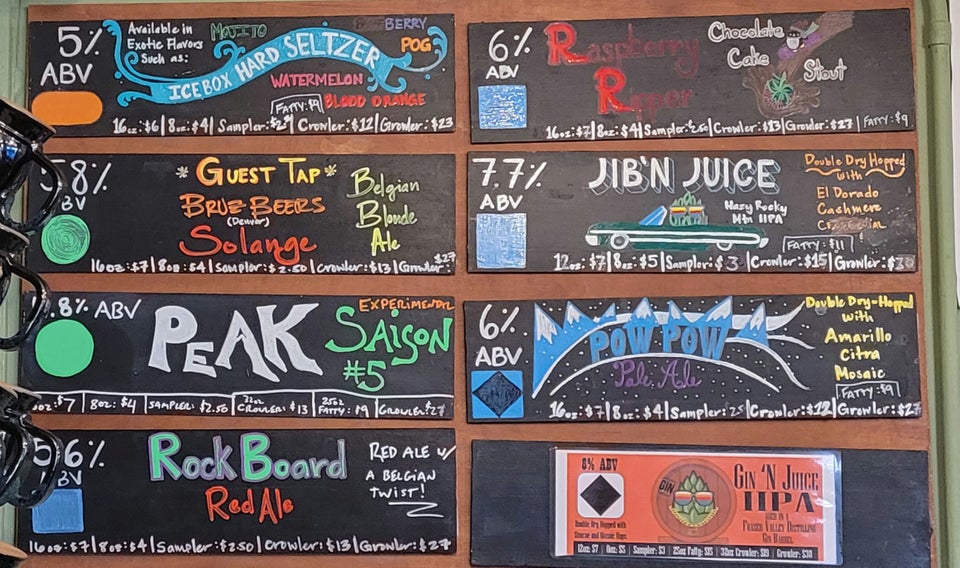 5%
ABV
Available in
Exotic Flavors
Such as:
MOJITO
BERRY
POG
ICEBOX HARD SELTZER
WATERMELON
FATTY: $9
BLOOD ORANGE
16oz:$6|8oz:$4|Sampler:|Crowler:$12|Growler:$23
6%
ABV
Raspberry
Ripper
Chocolate
Cake
Stout
16oz:$7|8oz:$4|Sampler:$2.50|Crowler:$13|Growler:$27|FATTY:$9
5.8%
ABV
* GUEST TAP *
BRUZ BEERS
(Denver)
Solange
Belgian
Blonde
Ale
16oz:$7|8oz:$4|Sampler:$2.50|Crowler:$13|Growler:$27
7.7%
ABV
JIB'N JUICE
Hazy Rocky
Mtn IIPA
Double Dry Hopped
with
El Dorado
Cashmere
Centennial
FATTY: $11
12oz:$7|8oz:$5|Sampler:$3|Crowler:$15|Growler:
.8% ABV
PEAK
EXPERIMENTAL
SAISON
#5
$7|8oz:$4|SAMPLER:$2.50|32oz CROWLER:$13|25oz FATTY:$9|GROWLER:$27
6%
ABV
POW POW
Pale Ale
Double Dry-Hopped
with
Amarillo
Citra
Mosaic
FATTY:$9
16oz:$7|8oz:$4|Sampler:|Crowler:$12|Growler:$27
5.6%
ABV
Rock Board
Red Ale
RED ALE W/
A BELGIAN
TWIST!
16oz:$7|8oz:$4|Sampler:$2.50|Crowler:$13|Growler:$27
8% ABV
Double Dry Hopped with
Simcoe and Mosaic Hops
GIN
GIN 'N JUICE
IIPA
AGED IN A
FRASER VALLEY DISTILLING
GIN BARREL
12oz: $7 | 8oz: $5 | Sampler: $3 | 25oz Fatty: $15 | 32oz Crowler: $19 | Growler: $30